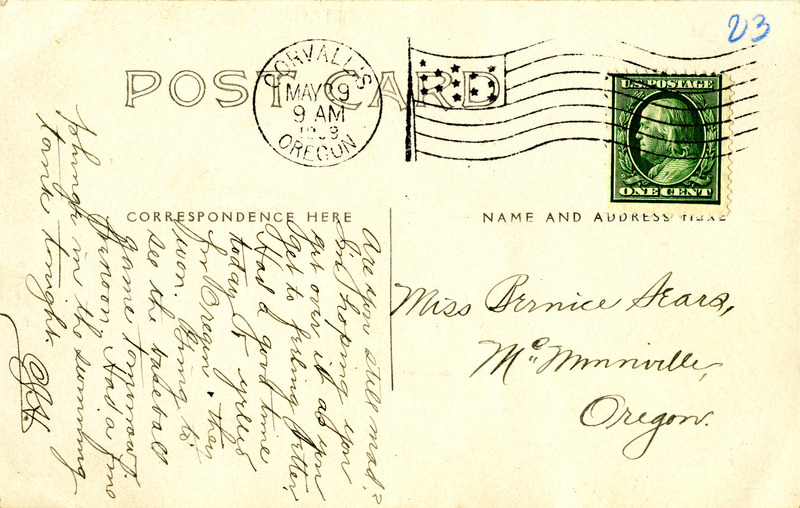 23
POST CARD
CORVALLIS
MAY 29
9 AM
OREGON
U.S. POSTAGE
ONE CENT
CORRESPONDENCE HERE
NAME AND ADDRESS HERE
Miss Bernice Sears,
McMinnville,
Oregon.
Are you still mad?
I'm hoping you
get over it as you
get to feeling better.
Had a good time
today. I yelled
for Oregon, they
won. Going to
see the baseball
game tomorrow
afternoon. Had a fine
plunge in the swimming
tank tonight.